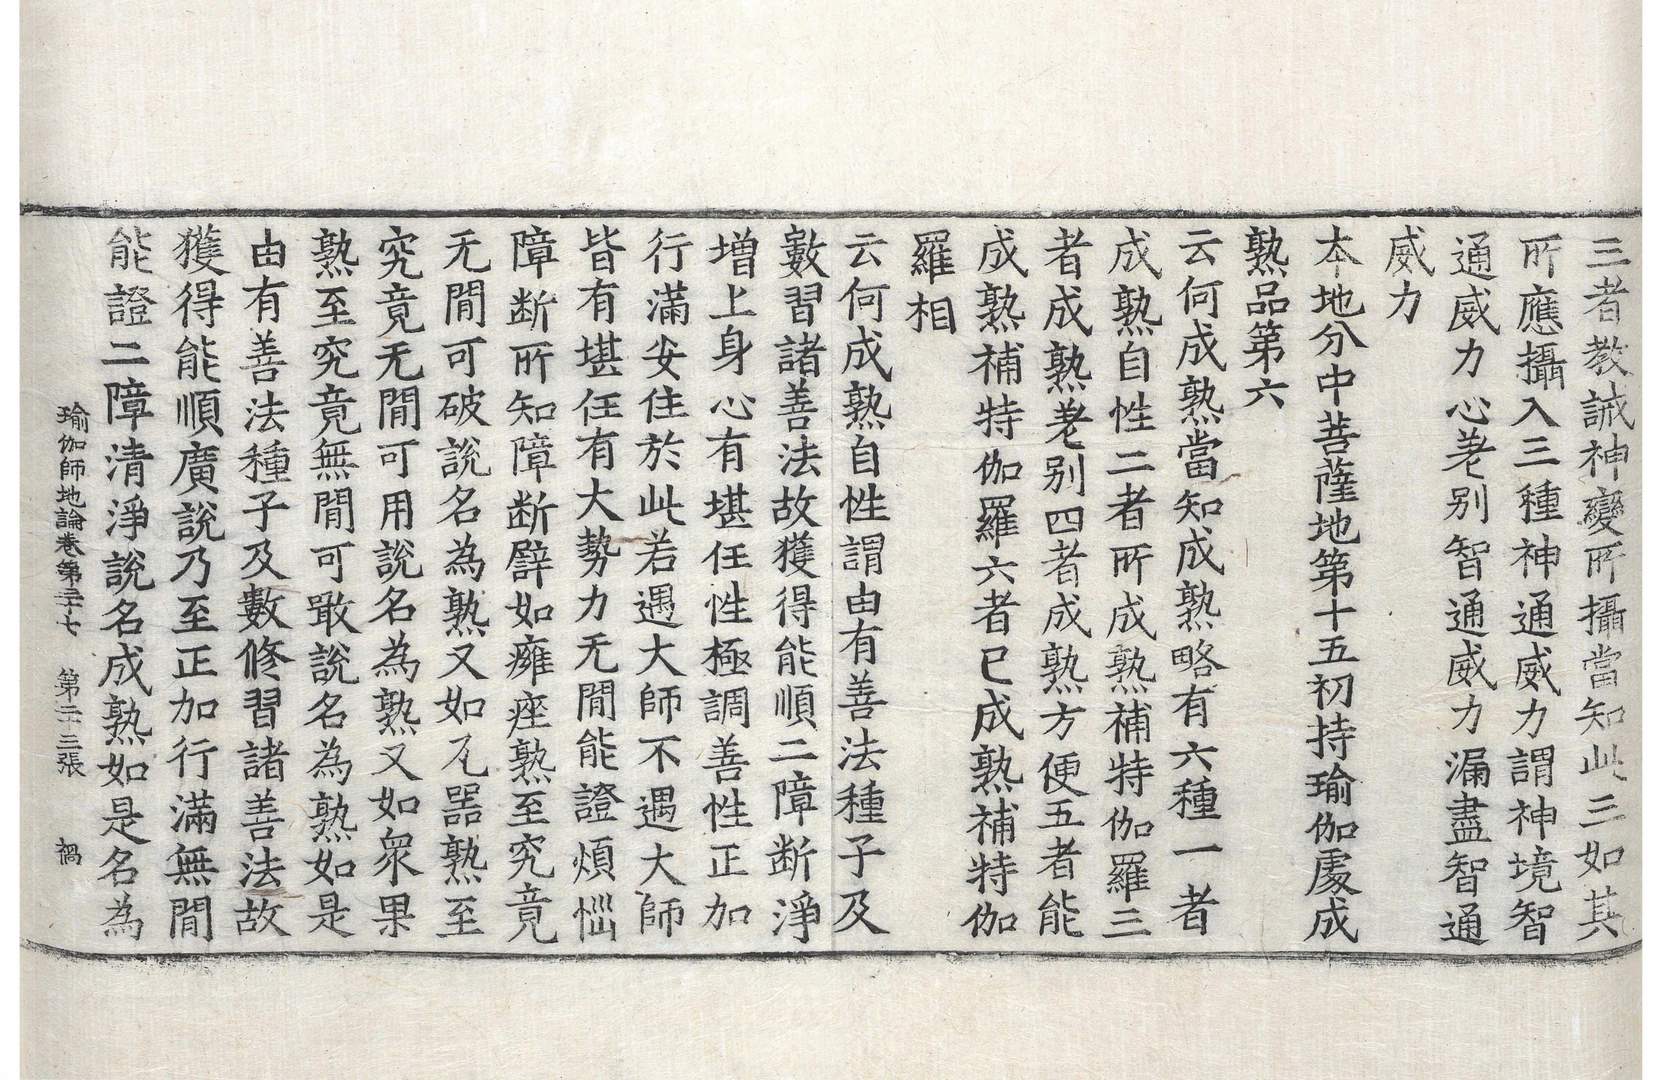 三者教誡神變所攝當知此三如其
所應攝入三種神通威力謂神境智
通威力心差别智通威力漏盡智通
威力
本地分中菩薩地第十五初持瑜伽處成
熟品第六
云何成熟當知成熟略有六種一者
成熟自性二者所成熟補特伽羅三
者成熟差别四者成熟方便五者能
成熟補特伽羅六者已成熟補特伽
羅相
云何成熟自性謂由有善法種子及
數習諸善法故獲得能順二障斷淨
增上身心有堪任性極調善性正加
行滿安住於此若遇大師不遇大師
皆有堪任有大勢力无閒能證煩惱
障断所知障断譬如癰痤熟至究竟
无閒可破說名為熟又如瓦器熟至
究竟无閒可用說名為熟又如衆果
熟至究竟無閒可噉說名為熟如是
由有善法種子及數修習諸善法故
獲得能順廣說乃至正加行滿無閒
能證二障清淨說名成熟如是名為
瑜伽師地論卷第三十七 第二十三張 禍